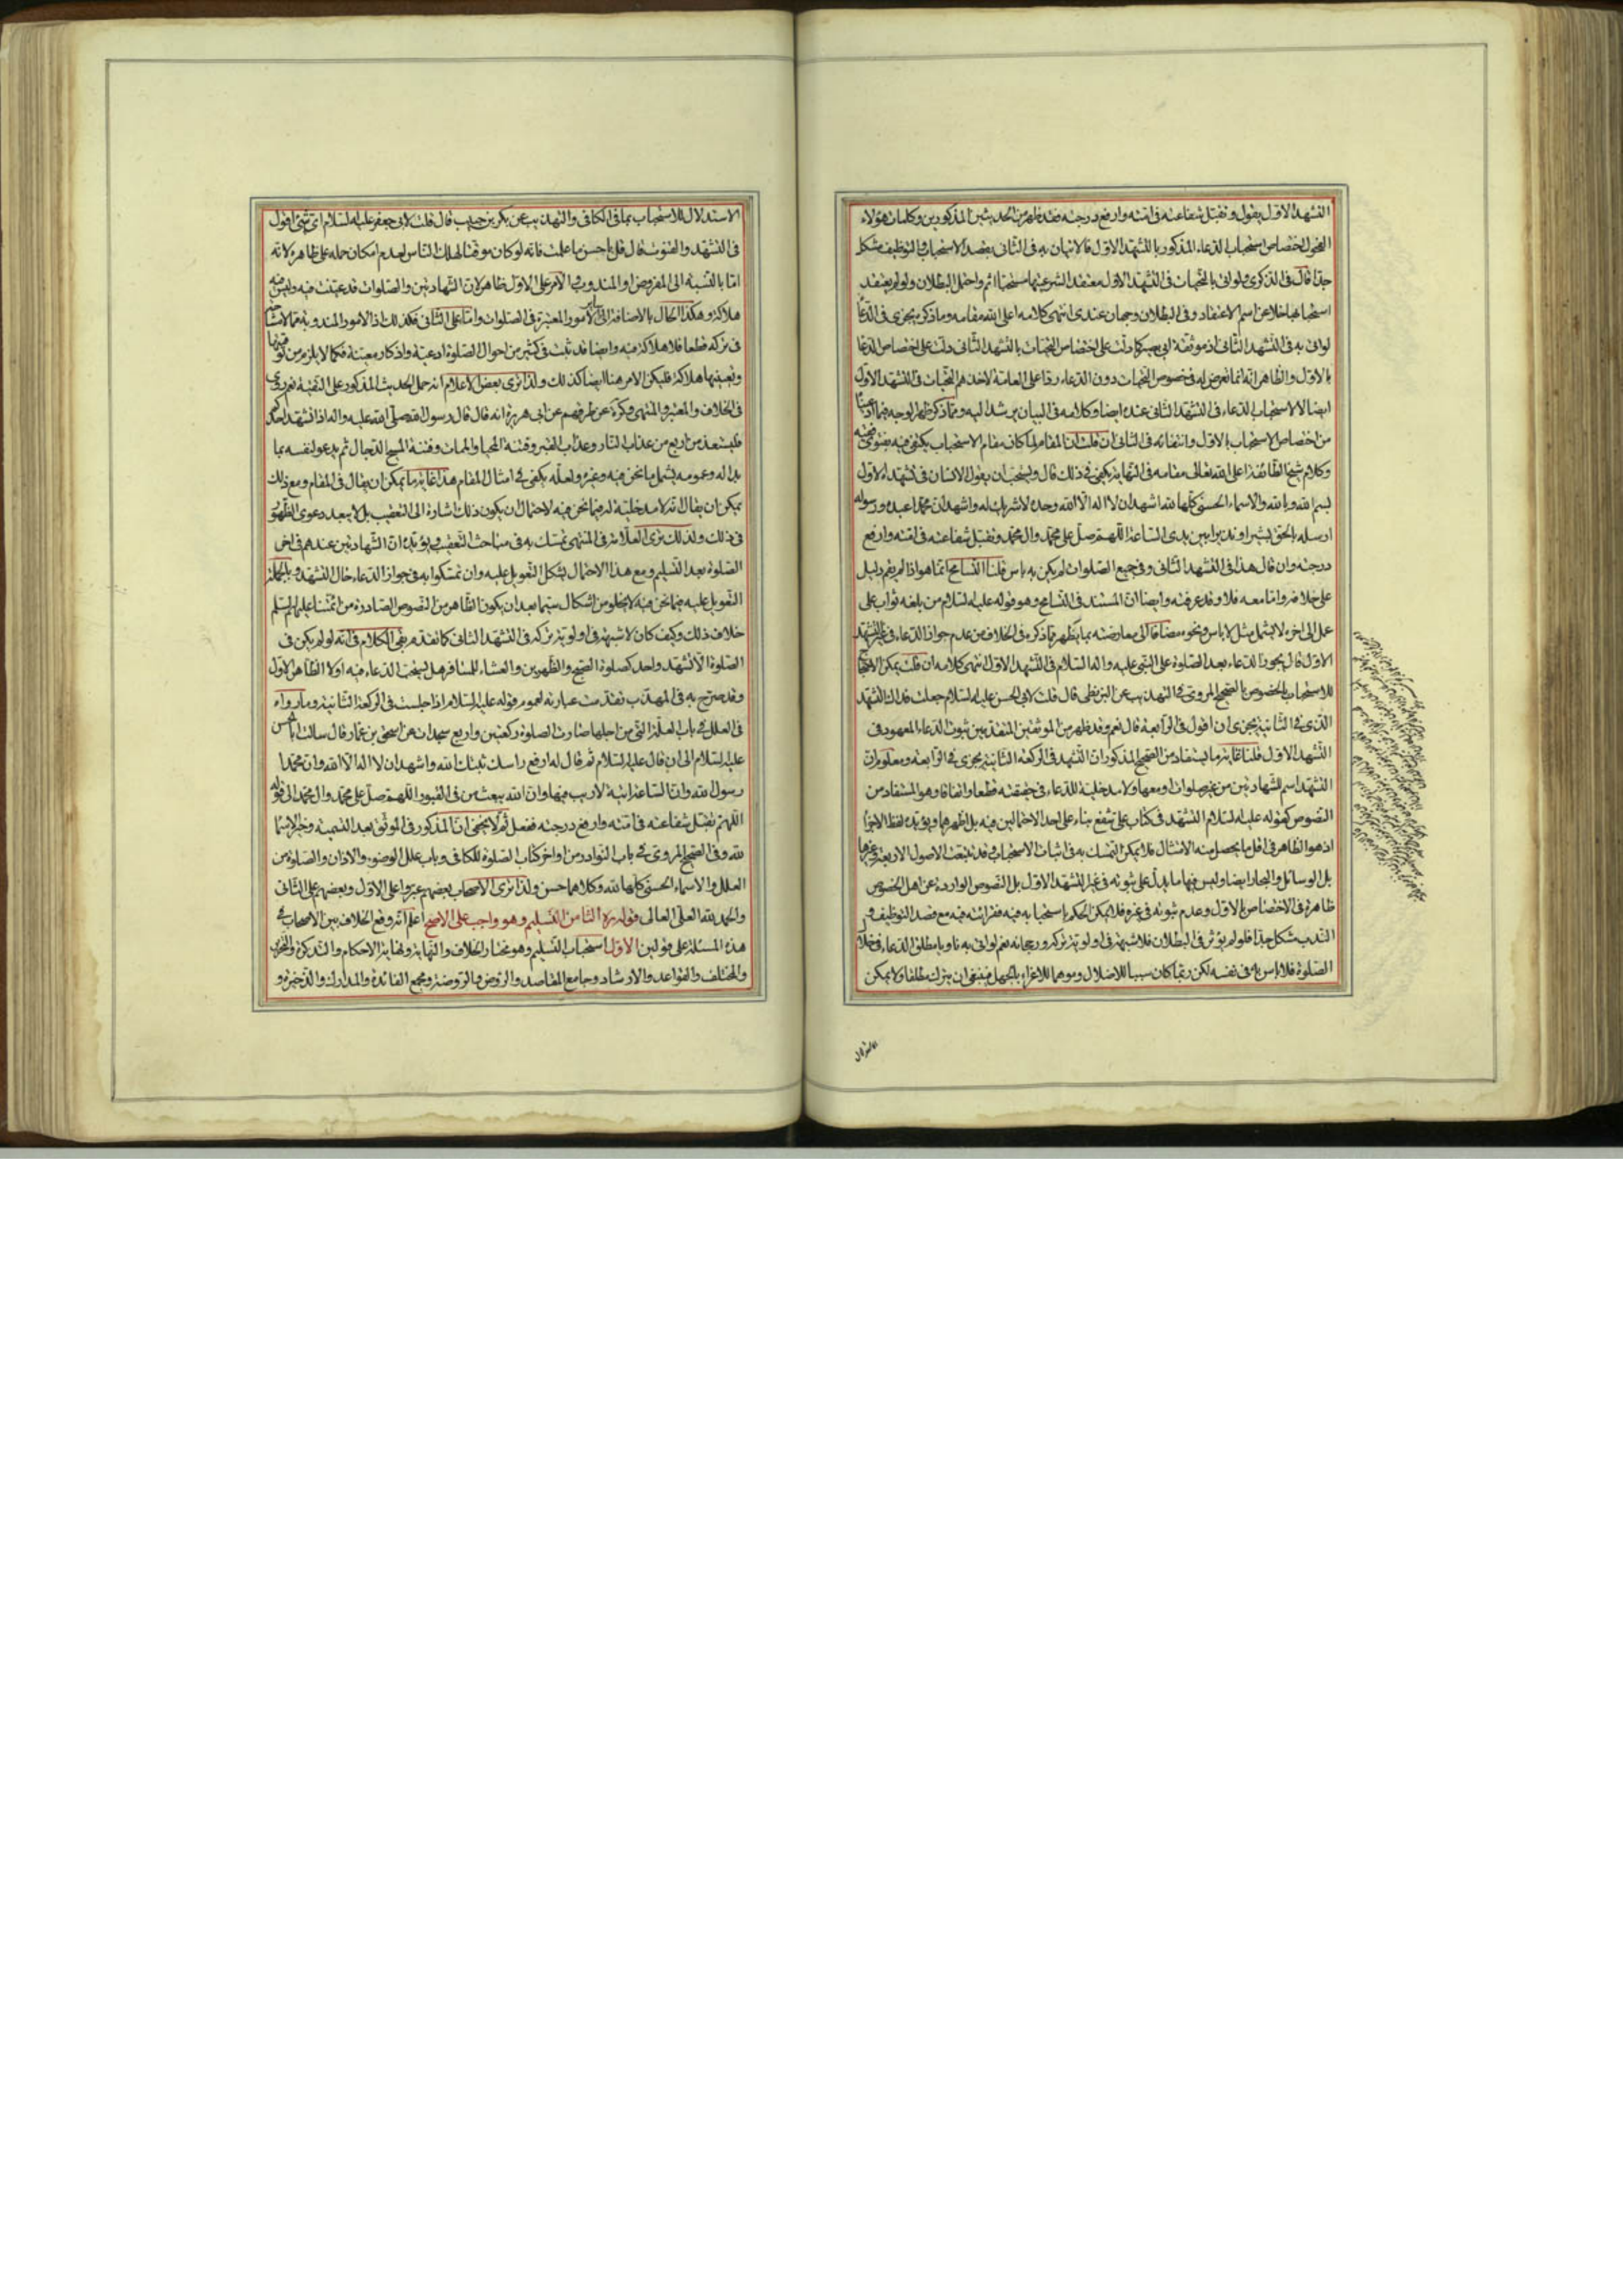 التشهد الاول يقول وتقبل شفاعته في امته وارفع درجته فقد ظهر من الحديثين المذكورين وكلمات هؤلاء
الفحول اختصاص استحباب الدعاء المذكور بالتشهد الاول فالاتيان به في الثاني بقصد الاستحباب والتوظيف مشكل
جدا قال في الذكرى ولو اتى بالتحيات في التشهد الاول معتقدا لشرعيتها مستحبا اثم واحتمل البطلان ولو لم يعتقد
استحبابها خلا عن اسم الاعتقاد وفي البطلان وجهان عندي انتهى كلامه اعلى الله مقامه وما ذكره يجري في الدعاء
لو اتى به في التشهد الثاني اذ موثقة ابي بصير كما دلت على اختصاص التحيات بالتشهد الثاني دلت على اختصاص الدعاء
بالاول والظاهر انه انما تعرض له في خصوص التحيات دون الدعاء ردا على العامة لاخذهم التحيات في التشهد الاول
ايضا لا لاستحباب الدعاء في التشهد الثاني عنده ايضا وكلامه في البيان يرشد اليه ومما ذكر ظهر الوجه فيما
من اختصاص الاستحباب بالاول وانتفائه في الثاني ان قلت ان المقام لما كان مقام الاستحباب يكتفى فيه بفتوى فقيه
وكلام شيخ الطائفة اعلى الله تعالى مقامه في النهاية يكفي في ذلك قال ويستحب ان يقول الانسان في تشهده الاول
بسم الله وبالله والاسماء الحسنى كلها لله اشهد ان لا اله الا الله وحده لا شريك له واشهد ان محمدا عبده ورسوله
ارسله بالحق بشيرا ونذيرا بين يدي الساعة اللهم صل على محمد وال محمد وتقبل شفاعته في امته وارفع
درجته وان قال هذا في التشهد الثاني وفي جميع الصلوات لم يكن به باس قلنا التسامح انما هو اذا لم يقم دليل
على خلافه واما معه فلا وقد عرفته وايضا ان المستند في التسامح وهو قوله عليه السلام من بلغه ثواب على
عمل الى اخره لا يشمل مثل لا باس ونحوه مضافا الى معارضته بما يظهر مما ذكره في الخلاف من عدم جواز الدعاء في غير التشهد
الاول قال يجوز الدعاء بعد الصلوة على النبي عليه واله السلام في التشهد الاول انتهى كلامه ان قلت يمكن الاحتجاج
للاستحباب بالخصوص بالصحيح المروي في التهذيب عن البزنطي قال قلت لابي الحسن عليه السلام جعلت فداك التشهد
الذي في الثانية يجزي ان اقول في الرابعة قال نعم وقد ظهر من الموثقين المتقدمين ثبوت الدعاء المعهود في
التشهد الاول قلنا غاية ما يستفاد من الصحيح المذكور ان التشهد في الركعة الثانية يجزي في الرابعة ومعلوم ان
التشهد اسم للشهادتين من غير صلوات او معها ولا مدخلية للدعاء في حقيقته قطعا واتفاقا وهو المستفاد من
النصوص كقوله عليه السلام التشهد في كتاب علي شفع بناء على احد الاحتمالين فيه بل اظهرهما ويؤيده لفظ الاجزاء
اذ هو الظاهر في اقل ما يحصل منه الامتثال فلا يمكن التمسك به في اثبات الاستحباب وقد تتبعت الاصول الاربعة وغيرها
بل الوسائل والبحار ايضا وليس فيها ما يدل على ثبوته في غير التشهد الاول بل النصوص الواردة عن اهل الخصوص
ظاهرة في الاختصاص بالاول وعدم ثبوته في غيره فلا يمكن الحكم باستحبابه فيه فقرائته فيه مع قصد التوظيف و
الندب مشكل جدا فلو لم يؤثر في البطلان فلا شبهة في اولوية تركه ورجحانه نعم لو اتى به ناويا مطلق الدعاء في خلال
الصلوة فلا باس به في نفسه لكن ربما كان سببا للاضلال وموهما للاغراء بالجهل فينبغي ان يترك مطلقا ولا يمكن
الاستدلال
الاستدلال للاستحباب بما في الكافي والتهذيب عن بكر بن حبيب قال قلت لابي جعفر عليه السلام اي شيء اقول
في التشهد والقنوت قال قل باحسن ما علمت فانه لو كان موقتا لهلك الناس لعدم امكان حمله على ظاهره لانه
اما بالنسبة الى المفروض او المندوب الامر على الاول ظاهر لان الشهادتين والصلوات قد عينت فيه وليس فيه
هلاكة وهكذا الحال بالاضافة الى الامور المعتبرة في الصلوات واما على الثاني فكذلك اذ الامور المندوبة مما لا شك
في تركه قطعا فلا هلاكة فيه وايضا قد ثبت في كثير من احوال الصلوة ادعية واذكار معينة فكما لا يلزم من توقيتها
وتعيينها هلاكة فليكن الامر هنا ايضا كذلك ولذا ترى بعض الاعلام انه حمل الحديث المذكور على التقية نعم روى
في الخلاف والمعتبر والمنتهى وكره عن طرقهم عن ابي هريرة انه قال قال رسول الله صلى الله عليه واله اذا تشهد احدكم
فليستعذ من اربع من عذاب النار وعذاب القبر وفتنة المحيا والممات وفتنة المسيح الدجال ثم يدعو لنفسه بما
بدا له وعمومه يشمل ما نحن فيه وغيره ولعله يكفي في امثال المقام هذا غاية ما يمكن ان يقال في المقام ومع ذلك
يمكن ان يقال انه لا مدخلية له فيما نحن فيه لاحتمال ان يكون ذلك اشارة الى التعقيب بل لا يبعد دعوى الظهور
في ذلك ولذلك ترى العلامة في المنتهى تمسك به في مباحث التعقيب ويؤيده ان الشهادتين عندهم في اخر
الصلوة بعد التسليم ومع هذا الاحتمال يشكل التعويل عليه وان تمسكوا به في جواز الدعاء حال التشهد وبالجملة
التعويل عليه فيما نحن فيه لا يخلو من اشكال سيما بعد ان يكون الظاهر من النصوص الصادرة من ائمتنا عليهم السلم
خلاف ذلك وكيف كان لا شبهة في اولوية تركه في التشهد الثاني كما تقدم بقي الكلام في انه لو لم يكن في
الصلوة الا تشهد واحد كصلوة الصبح والظهرين والعشاء للمسافر هل يستحب الدعاء فيه اولا الظاهر الاول
وقد صرح به في المهذب تقدمت عبارته لعموم قوله عليه السلام اذا جلست في الركعة الثانية وما رواه
في العلل في باب العلة التي من اجلها صارت الصلوة ركعتين واربع سجدات عن اسحق بن عمار قال سالت ابا الحسن
عليه السلام الى ان قال عليه السلام ثم قال له ارفع راسك ثبتك الله واشهد ان لا اله الا الله وان محمدا
رسول الله وان الساعة اتية لا ريب فيها وان الله يبعث من في القبور اللهم صل على محمد وال محمد الى قوله
اللهم تقبل شفاعته في امته وارفع درجته ففعل ثم لا يخفى ان المذكور في الموثق بعد التسمية وخير الاسماء
لله وفي الصحيح المروي في باب النوادر من اواخر كتاب الصلوة للكافي وباب علل الوضوء والاذان والصلوة من
العلل والاسماء الحسنى كلها لله وكلاهما حسن ولذا ترى الاصحاب بعضهم عبروا على الاول وبعضهم على الثاني
والحمد لله العلي العالي قوله ره الثامن التسليم وهو واجب على الاصح اعلم انه وقع الخلاف بين الاصحاب في
هذه المسئلة على قولين الاول استحباب التسليم وهو مختار الخلاف والنهاية ونهاية الاحكام والتذكرة والتحرير
والمختلف والقواعد والارشاد وجامع المقاصد والروض والروضة ومجمع الفائدة والمدارك والذخيرة و